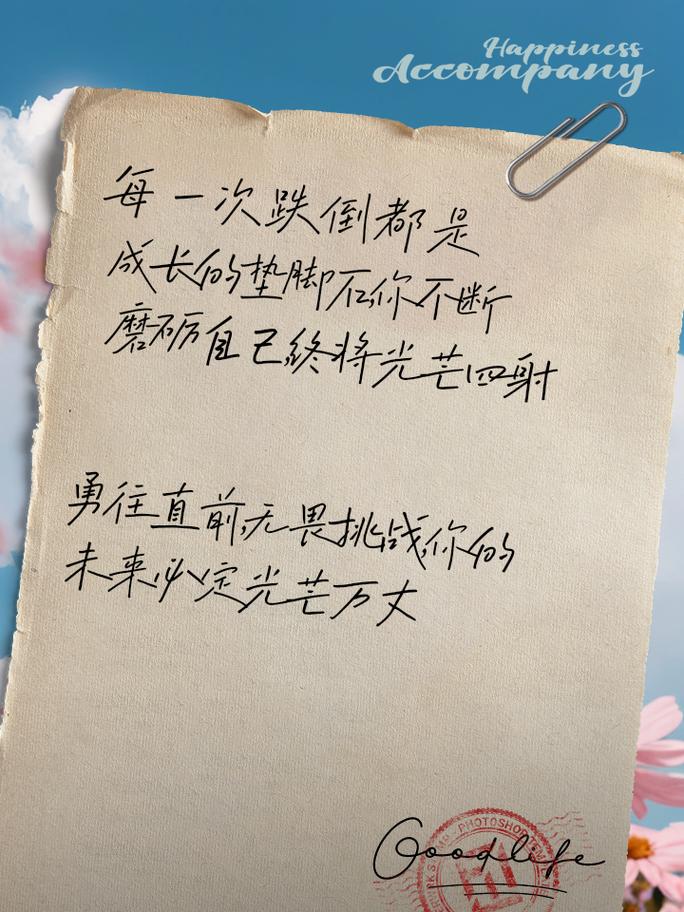 Happiness
Accompany
每一次跌倒都是
成长的垫脚石,你不断
磨砺自己终将光芒四射
勇往直前,无畏挑战,你的
未来必定光芒万丈
PHOTOSHOP
Goodlife